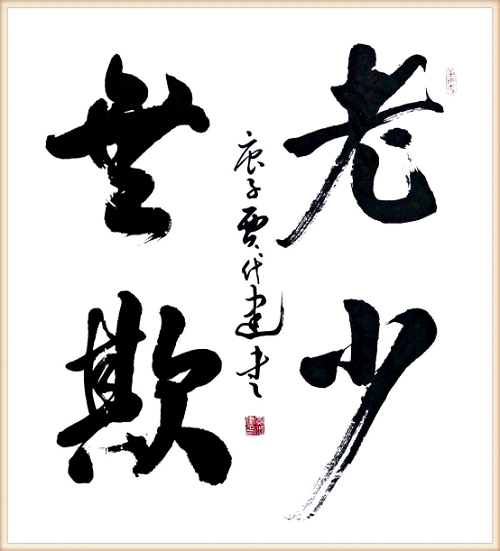 老少
無欺
庚子贾代建书